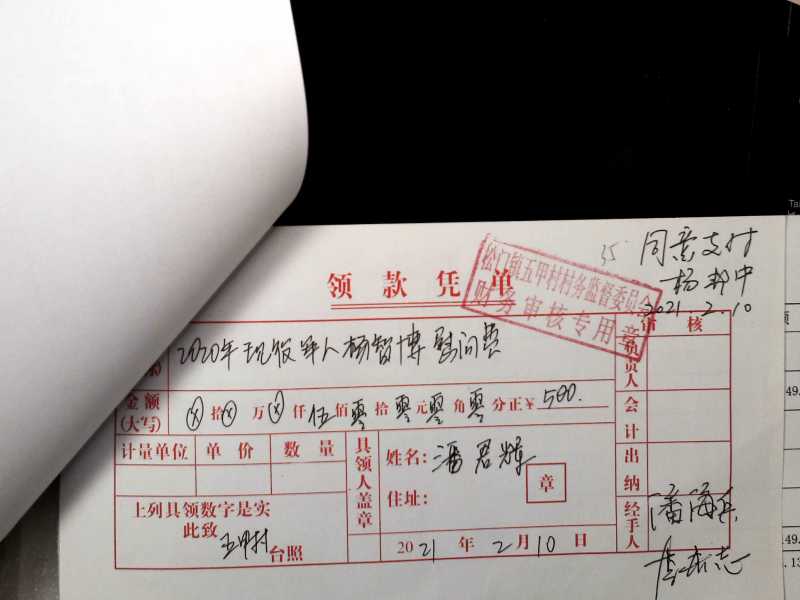 35
同意支付
杨邦中
2021.2.10
领款凭单
松门镇五甲村村务监督委员会
财务审核专用章
2020年现役军人杨智博慰问费
审核
负责人
金额
(大写)
ⓧ拾ⓧ万ⓧ仟伍佰零拾零元零角零分正¥500.
会计
计量单位 单价 数量
具领人盖章
姓名:潘君辉
住址:
章
出纳
上列具领数字是实
此致
五甲村台照
2021年2月10日
经手人
潘海兵